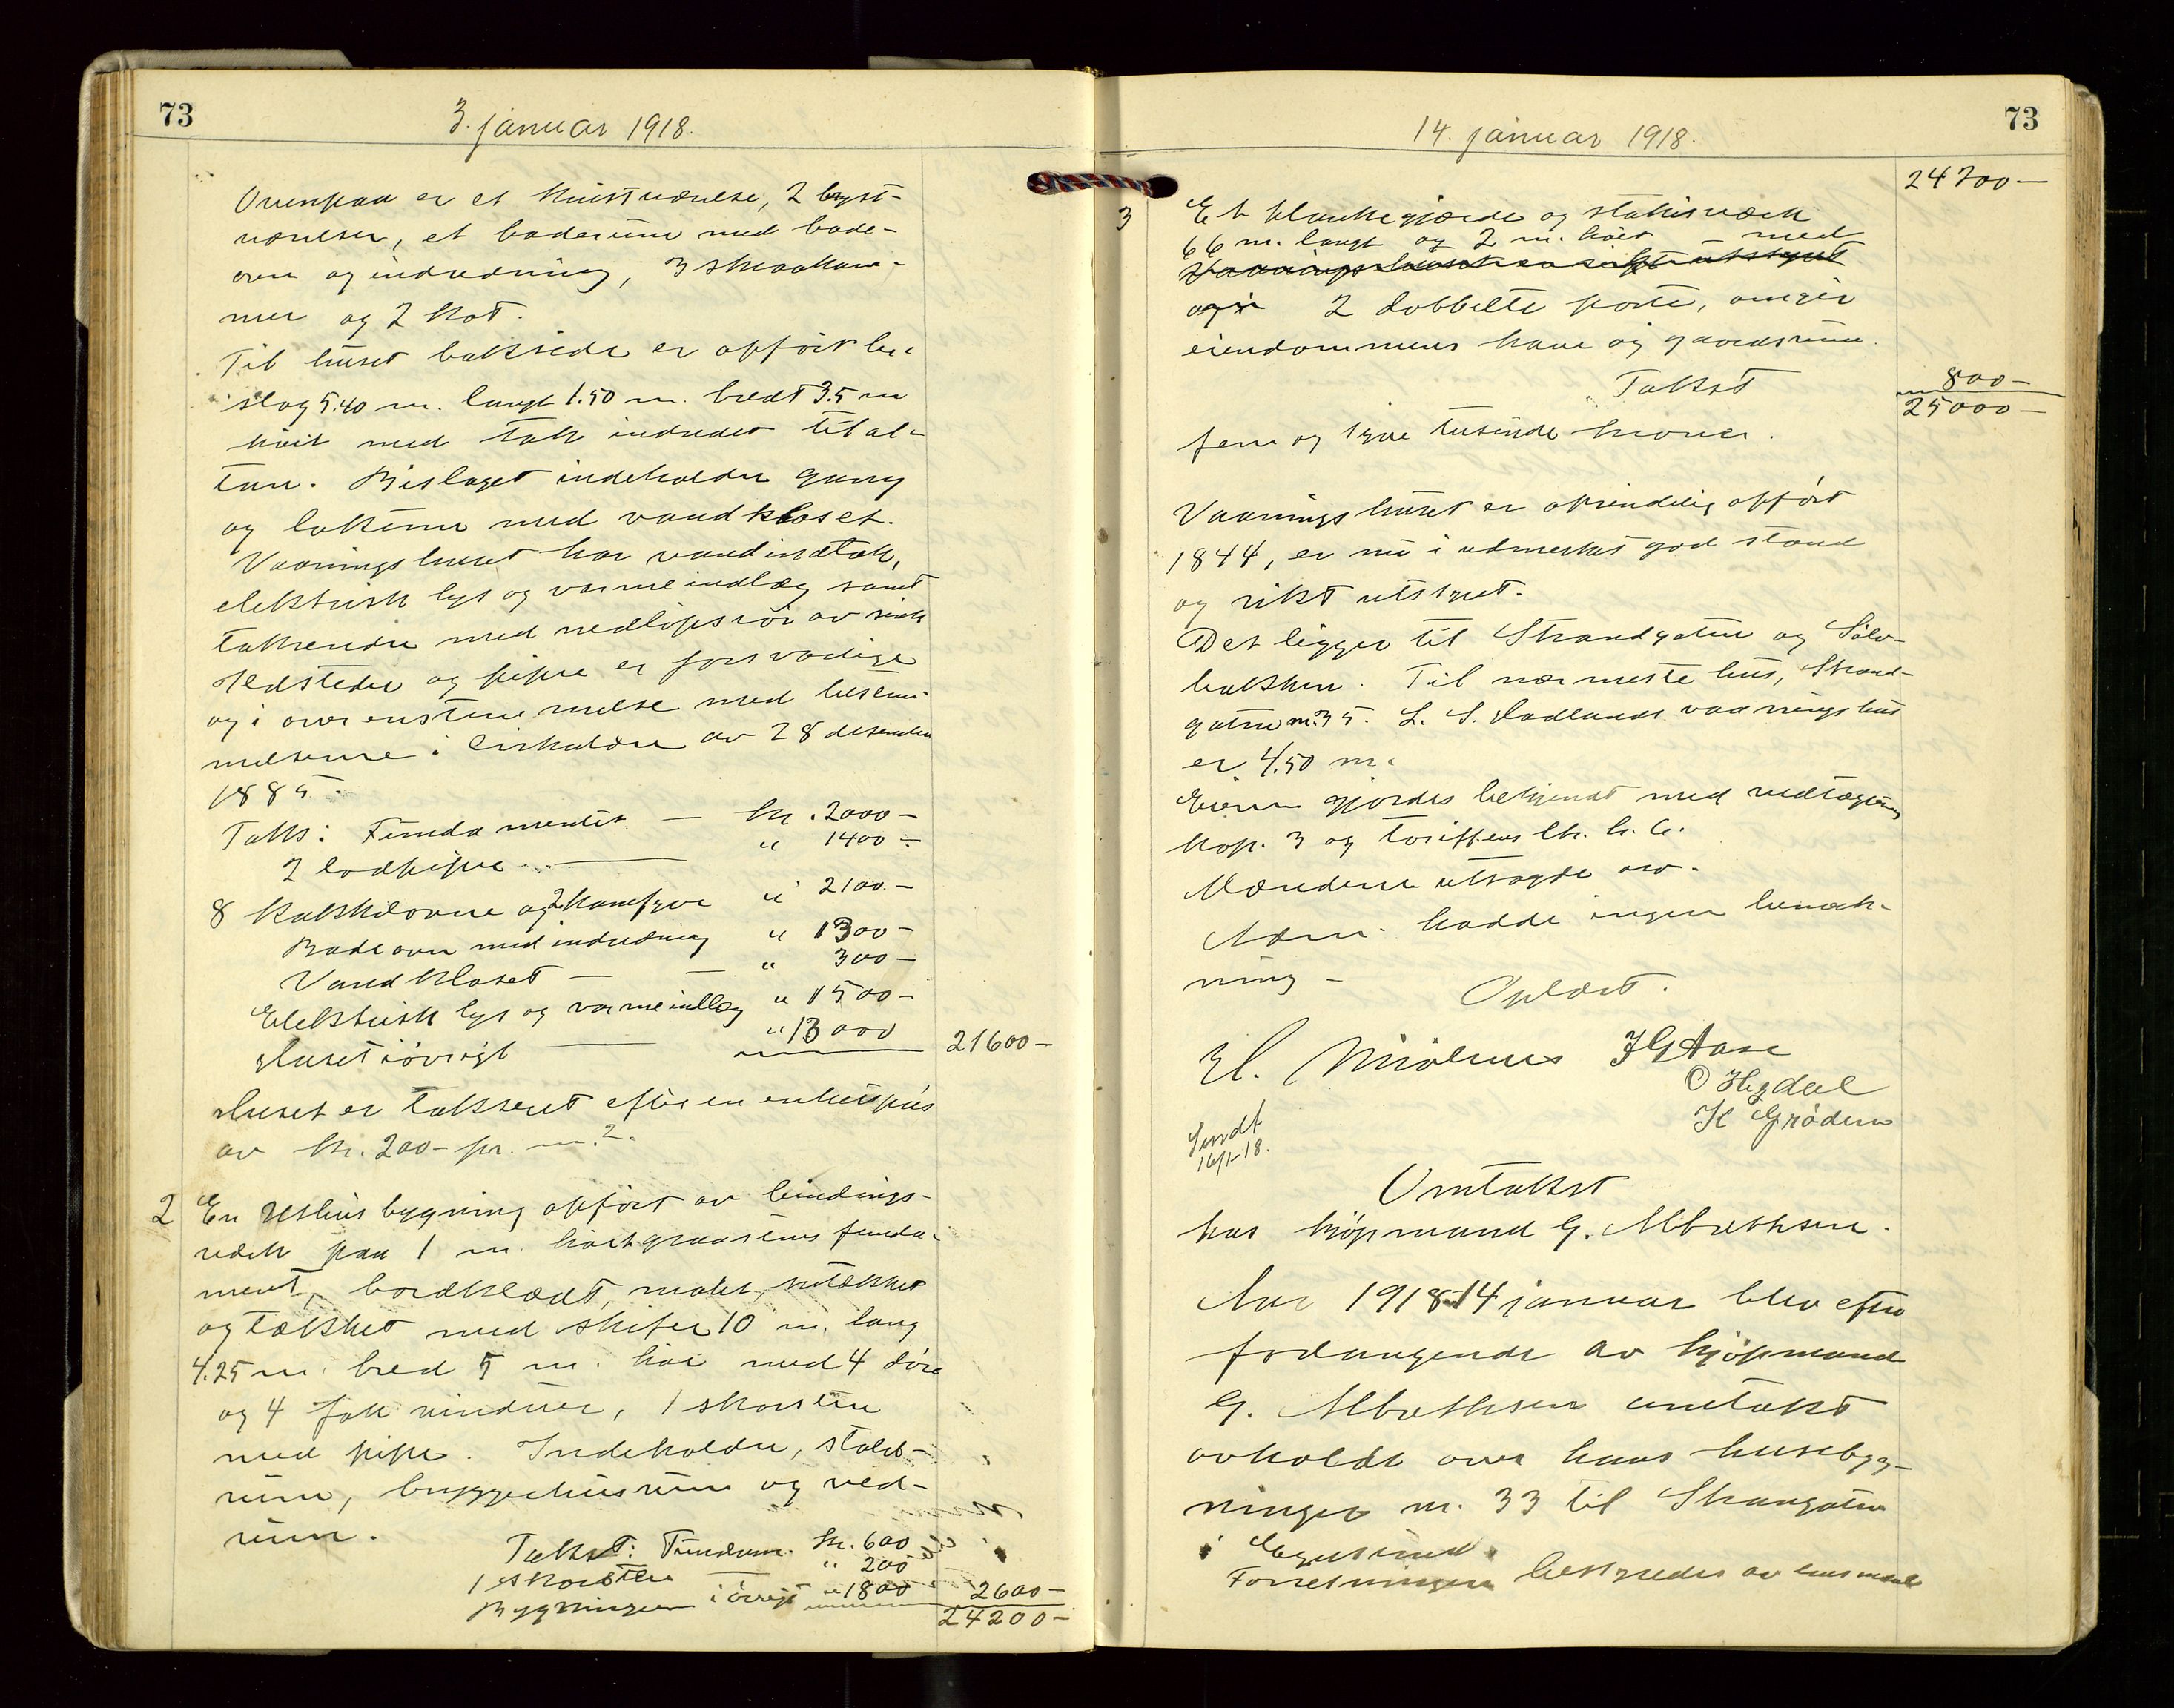 73
3. januar 1918.
Ovenpaa er et kvistværelse, 2 bryst-
værelser, et baderum med bade-
ovn og indredning, 3 skraakam-
mer og 2 kot.
Til huset bakside er opført bi-
slag 5.40 m. langt 1.50 m. bredt 3.5 m
høit med tak indredet til al-
tan. Bislaget indeholder gang
og lokum med vandkloset.
Vaaningshuset har vandindtak,
elektrisk lys og varmeindlæg samt
takrender med nedløpsrør av sink
Ildsteder og piper er forsvarlige
og i overenstemmelse med bestem-
melserne i Cirkulære av 28 desember
1885.
Takst: Fundamentet — kr. 2000 —
2 lodpiper — " 1400 —
8 kakkelovne og 2 komfyrer " 2100 —
Badeovn med indredning " 1300 —
Vandkloset — " 300 —
Elektrisk lys og varmeindlæg " 1500 —
Huset iøvrigt — " 13000 21600 —
Huset er taksert efter en enhetspris
av kr. 200 — pr. m.².
2 En uthusbygning opført av bindings-
verk paa 1 m. høit graastens funda-
ment, bordklædt, malet,
og tækket med skifer 10 m. lang
4.25 m. bred 5 m. høi med 4 døre
og 4 fak vinduer, 1 skorsten
med pipe. Indeholder, stald-
rum, bryggerhusrum og ved-
rum.
Takst: Fundam. kr. 600
1 skorsten — " 200
Bygningen i øvrigt " 1800 2600 —
24200 —
73
14. januar 1918.
24200 —
3 Et plankegjærde og stakitværk
66 m. langt og 2 m. høit med
2 dobbelte porte, omgir
eiendommens have og gaardsrum.
Takst 800 —
25000 —
fem og tyve tusinde kroner.
Vaaningshuset er oprindelig opført
1844, er nu i utmerket god stand
og rikt utstyret.
Det ligger til Strandgaten og Sølv-
bakken. Til nærmeste hus, Strand-
gaten nr. 35. L. S. Vadlands vaaningshus
er 4.50 m.
Eieren gjordes bekjendt med vedtægtens
kap. 3 og tariffens
Mændene utsagde osv.
Mænd. hadde ingen bemerk-
ning —
Oplæst.
El. JG Aase
O Hegdal
K Grødem
Sendt
16/1-18.
Omtakst
hos kjøpmand G. Albrethsen.
Aar 1918 14 januar blev efter
forlangende av kjøpmand
G. Albrethsen omtakst
avholdt over hans husebyg-
ninger nr. 33 til Strangaten
i Egersund.
Forretningen bestyredes av lensmand